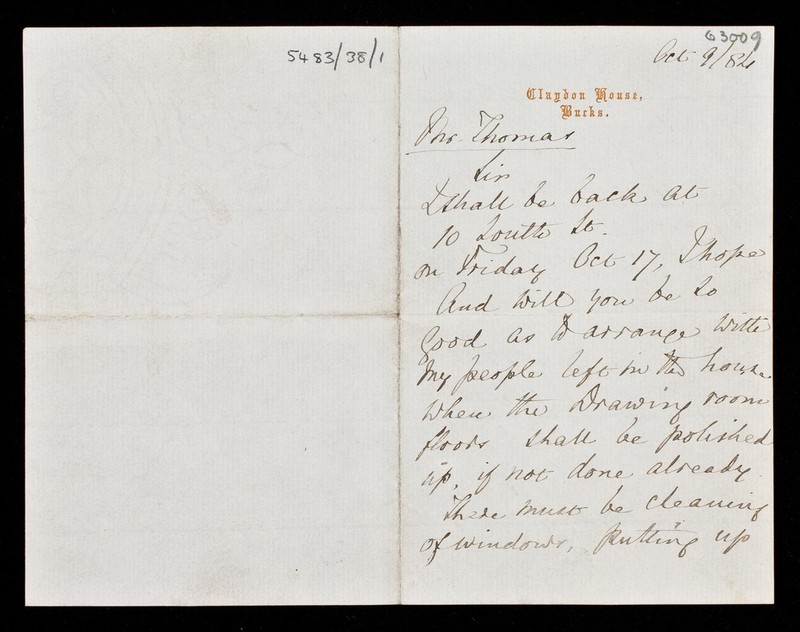 5483/38/1
63009
Oct 9/84
Claydon House,
Bucks.
Mr. Thomas
Sir
I shall be back at
10 South St.
on Friday Oct 17, I hope
And will you be so
good as to arrange with
my people left in the house
when the Drawing room
floors shall be polished
up, if not done already.
There must be cleaning
of windows, putting up